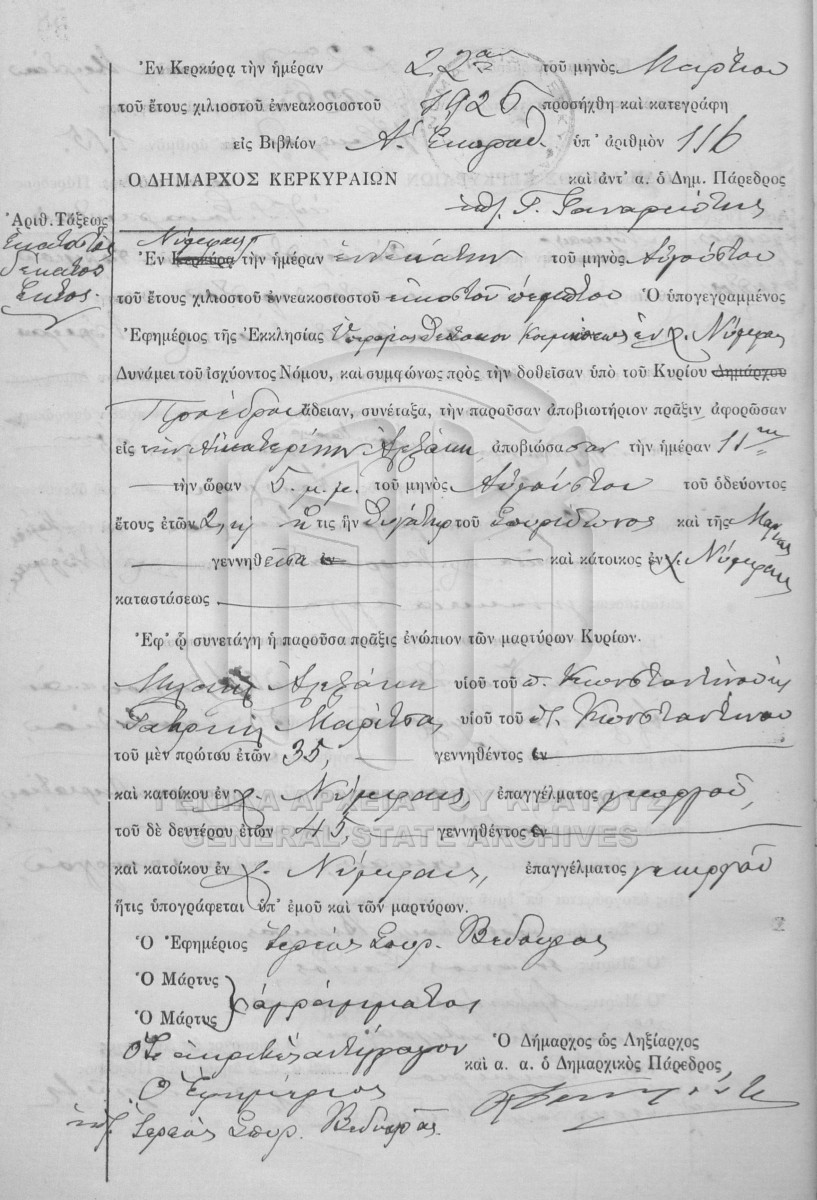 Ἐν Κερκύρᾳ τὴν ἡμέραν 22αν τοῦ μηνὸς Μαρτίου
τοῦ ἔτους χιλιοστοῦ ἐννεακοσιοστοῦ 1926 προσήχθη καὶ κατεγράφη
εἰς Βιβλίον Α. Ἐκπροθ. ὑπ' ἀριθμὸν 116
Ο ΔΗΜΑΡΧΟΣ ΚΕΡΚΥΡΑΙΩΝ καὶ ἀντ' α. ὁ Δημ. Πάρεδρος
Ἀριθ. Τάξεως
Ἑκατοστὸς
δέκατος
ἕκτος.
Νύμφαις
Ἐν Κερκύρᾳ τὴν ἡμέραν ἑνδεκάτην τοῦ μηνὸς Αὐγούστου
τοῦ ἔτους χιλιοστοῦ ἐννεακοσιοστοῦ εἰκοστοῦ πέμπτου Ὁ ὑπογεγραμμένος
Ἐφημέριος τῆς Ἐκκλησίας Ὑπεραγίας Θεοτόκου Κοιμήσεως ἐν χ. Νύμφαις
Δυνάμει τοῦ ἰσχύοντος Νόμου, καὶ συμφώνως πρὸς τὴν δοθεῖσαν ὑπὸ τοῦ Κυρίου Δημάρχου
Προέδρου ἄδειαν, συνέταξα, τὴν παροῦσαν ἀποβιωτήριον πρᾶξιν, ἀφορῶσαν
εἰς τὴν Αἰκατερίνην ἀποβιώσασαν τὴν ἡμέραν 11ην
τὴν ὥραν 5. μ.μ. τοῦ μηνὸς Αὐγούστου τοῦ ὁδεύοντος
ἔτους ἐτῶν ἥτις ἦν θυγάτηρ τοῦ Σπυρίδωνος καὶ τῆς Μαρίας
γεννηθεῖσα ἐν καὶ κάτοικος ἐν χ. Νύμφαις
καταστάσεως
Ἐφ' ᾧ συνετάγη ἡ παροῦσα πρᾶξις ἐνώπιον τῶν μαρτύρων Κυρίων.
υἱοῦ τοῦ π. Κωνσταντίνου
Μαρίτσας υἱοῦ τοῦ Κωνσταντίνου
τοῦ μὲν πρώτου ἐτῶν 35, γεννηθέντος ἐν
καὶ κατοίκου ἐν χ. Νύμφαις, ἐπαγγέλματος γεωργοῦ,
ΓΕΝΙΚΑ ΑΡΧΕΙΑ ΤΟΥ ΚΡΑΤΟΥΣ
τοῦ δὲ δευτέρου ἐτῶν 45, γεννηθέντος ἐν
GENERAL STATE ARCHIVES
καὶ κατοίκου ἐν χ. Νύμφαις, ἐπαγγέλματος γεωργοῦ
ἥτις ὑπογράφεται ὑπ' ἐμοῦ καὶ τῶν μαρτύρων.
Ὁ Ἐφημέριος Ἱερεὺς Σπυρ. Βεδουρᾶς
Ὁ Μάρτυς
ἀγράμματοι
Ὁ Μάρτυς
Ὅτι ἀκριβὲς ἀντίγραφον
Ὁ Δήμαρχος ὡς Ληξίαρχος
καὶ α. α. ὁ Δημαρχικὸς Πάρεδρος
Ὁ Ἐφημέριος
Ἱερεὺς Σπυρ. Βεδουρᾶς.